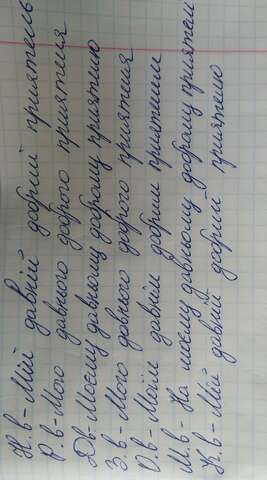 Н.в - Мій давній добрий приятель
Р.в - Мого давнього доброго приятеля
Д.в - Моєму давньому доброму приятелю
З.в - Мого давнього доброго приятеля
О.в - Моїм давнім добрим приятелем
М.в - На моєму давньому доброму приятелі
К.в - Мій давній добрий приятелю